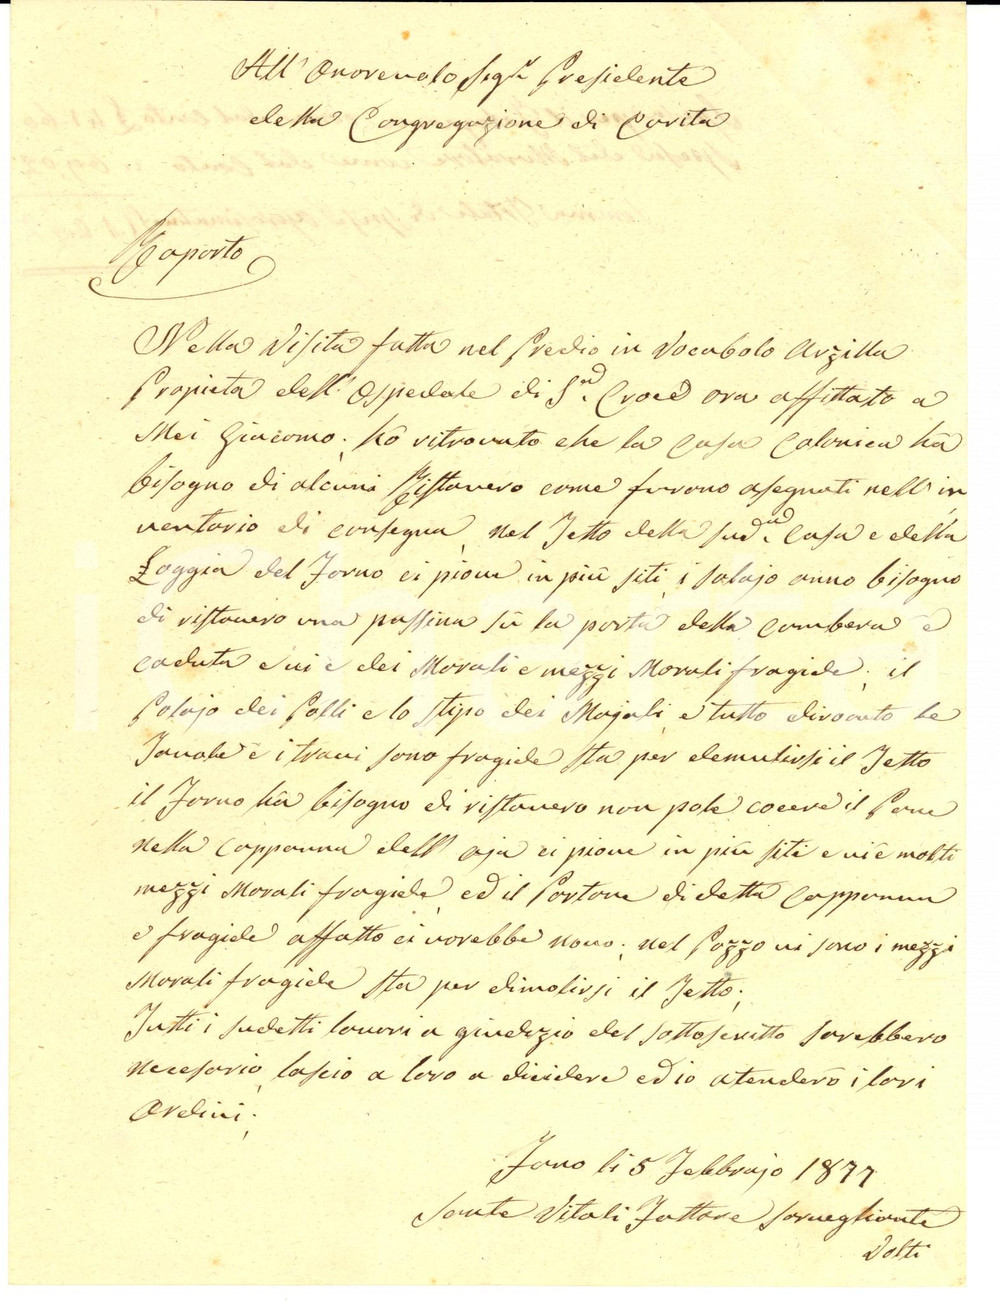 All' Onorevolo Sigr Presidente
della Congregazione di Carita
Raporto
Nella Visita fatta nel Predio in Vocabolo Arzilla
Propieta dell' Ospedale di S.ta Croce ora affittato a
Mei Giacomo; hò ritrovato che la Casa Colonica hà
bisogno di alcuni Ristauro come furono asegnati nell' in
ventario di consegna, nel Tetto della sud.ta Casa e della
Loggia del Forno ci piove in più siti, i solajo anno bisogno
di ristauro una passina sù la porta della Cambera è
caduta e vi è dei Morali e mezzi Morali fragide; il
Polajo dei Polli e lo stipo dei Majali è tutto dirocato le
Tavole e i travi sono fragide sta per demulirsi il Tetto
il Forno hà bisogno di ristauro non pole cocere il Pane
nella Cappanna dell' aja ci piove in più siti e vi è molti
mezzi Morali fragide, ed il Portone di detta Cappanna
è fragide affatto ci vorebbe novo; nel Pozzo vi sono i mezzi
Morali fragide sta per dimolirsi il Tetto;
Tutti i sudetti lavori a giudizio del sottoscritto sarebbero
necesario, lascio a loro a dicidere ed io atenderò i lori
Ordini;
Fano li 5 Febbrajo 1877
Sante Vitali Fattore Sorvegliante
Volti